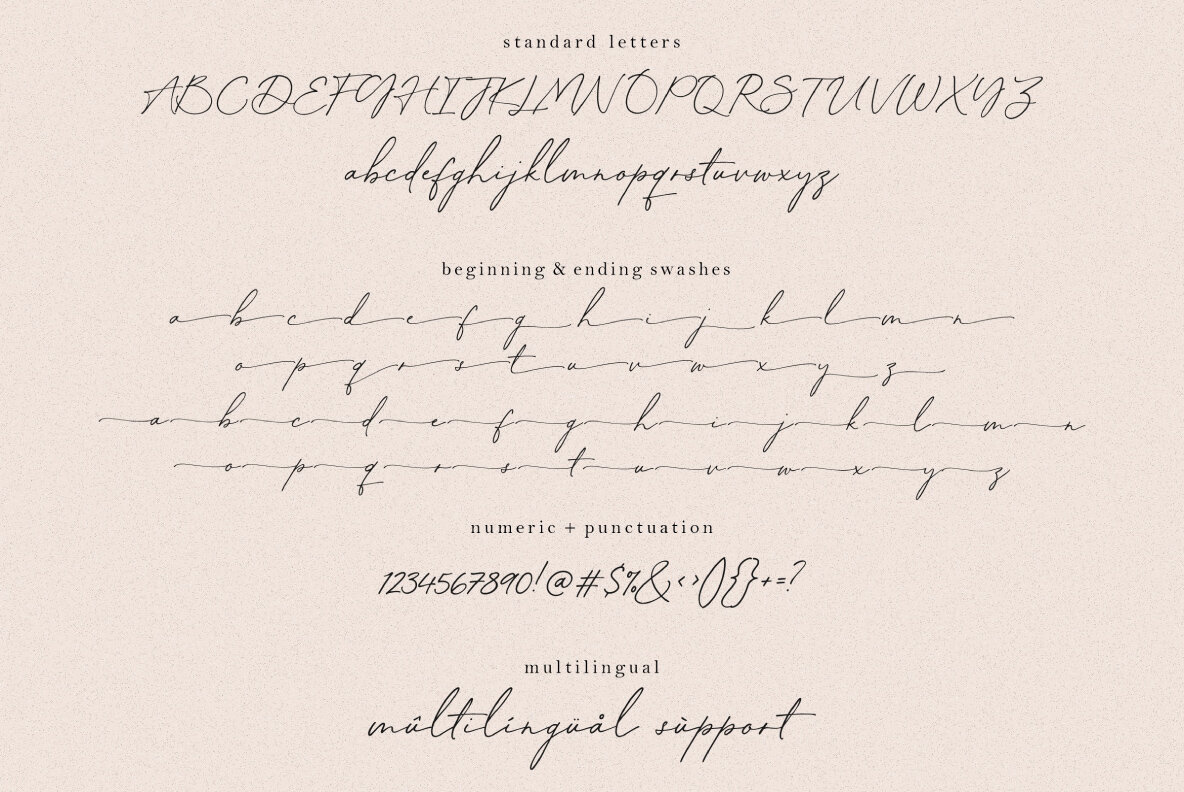 standard letters
ABCDEFGHIJKLMNOPQRSTUVWXYZ
abcdefghijklmnopqrstuvwxyz
beginning & ending swashes
a b c d e f g h i j k l m n
o p q r s t u v w x y z
a b c d e f g h i j k l m n
o p q r s t u v w x y z
numeric + punctuation
1234567890!@#$%&<>(){}+=?
multilingual
mûltilíngüål sùpport